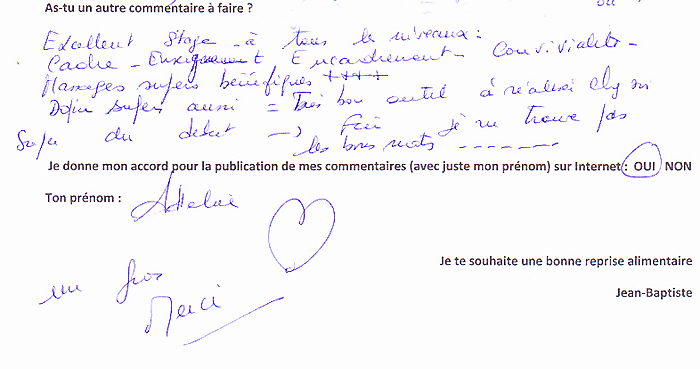 As-tu un autre commentaire à faire ?
Excellent stage à tous les niveaux :
Cadre - Enseignement Encadrement - Convivialité -
Massages supers bénéfiques ++++
supers aussi = Très bon outil à réaliser chez soi
du début → Fin je ne trouve pas
les bons mots -------
Je donne mon accord pour la publication de mes commentaires (avec juste mon prénom) sur Internet : OUI NON
Ton prénom :
Je te souhaite une bonne reprise alimentaire
un gros
Jean-Baptiste
Merci